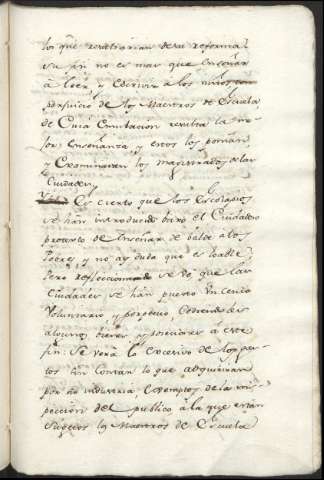 los que resultarian de su reforma
su fin no es mas que Enseñar
a leer, y escrivir a los niños con
perjuicio de los Maestros de Escuela
de Cuia Emulacion resulta la me
jor enseñanza, y estos los ponian
y Examinavan los magistrados de las
Ciudades
Es cierto que los Escolapios
se han introducido baxo el
pretexto de Enseñar de balde a los
Pobres y no ay duda que es loable
Pero reflecsionando se ve que las
Ciudades se han puesto un Censo
Voluntario y perpetuo
algunos bienes y a este
fin: Se verá lo excesivo de los gas
tos sin contar lo que adquieran
por su industria, Esemptos de la ins
peccion del publico a la que estan
Sugetos los Maestros de Escuela